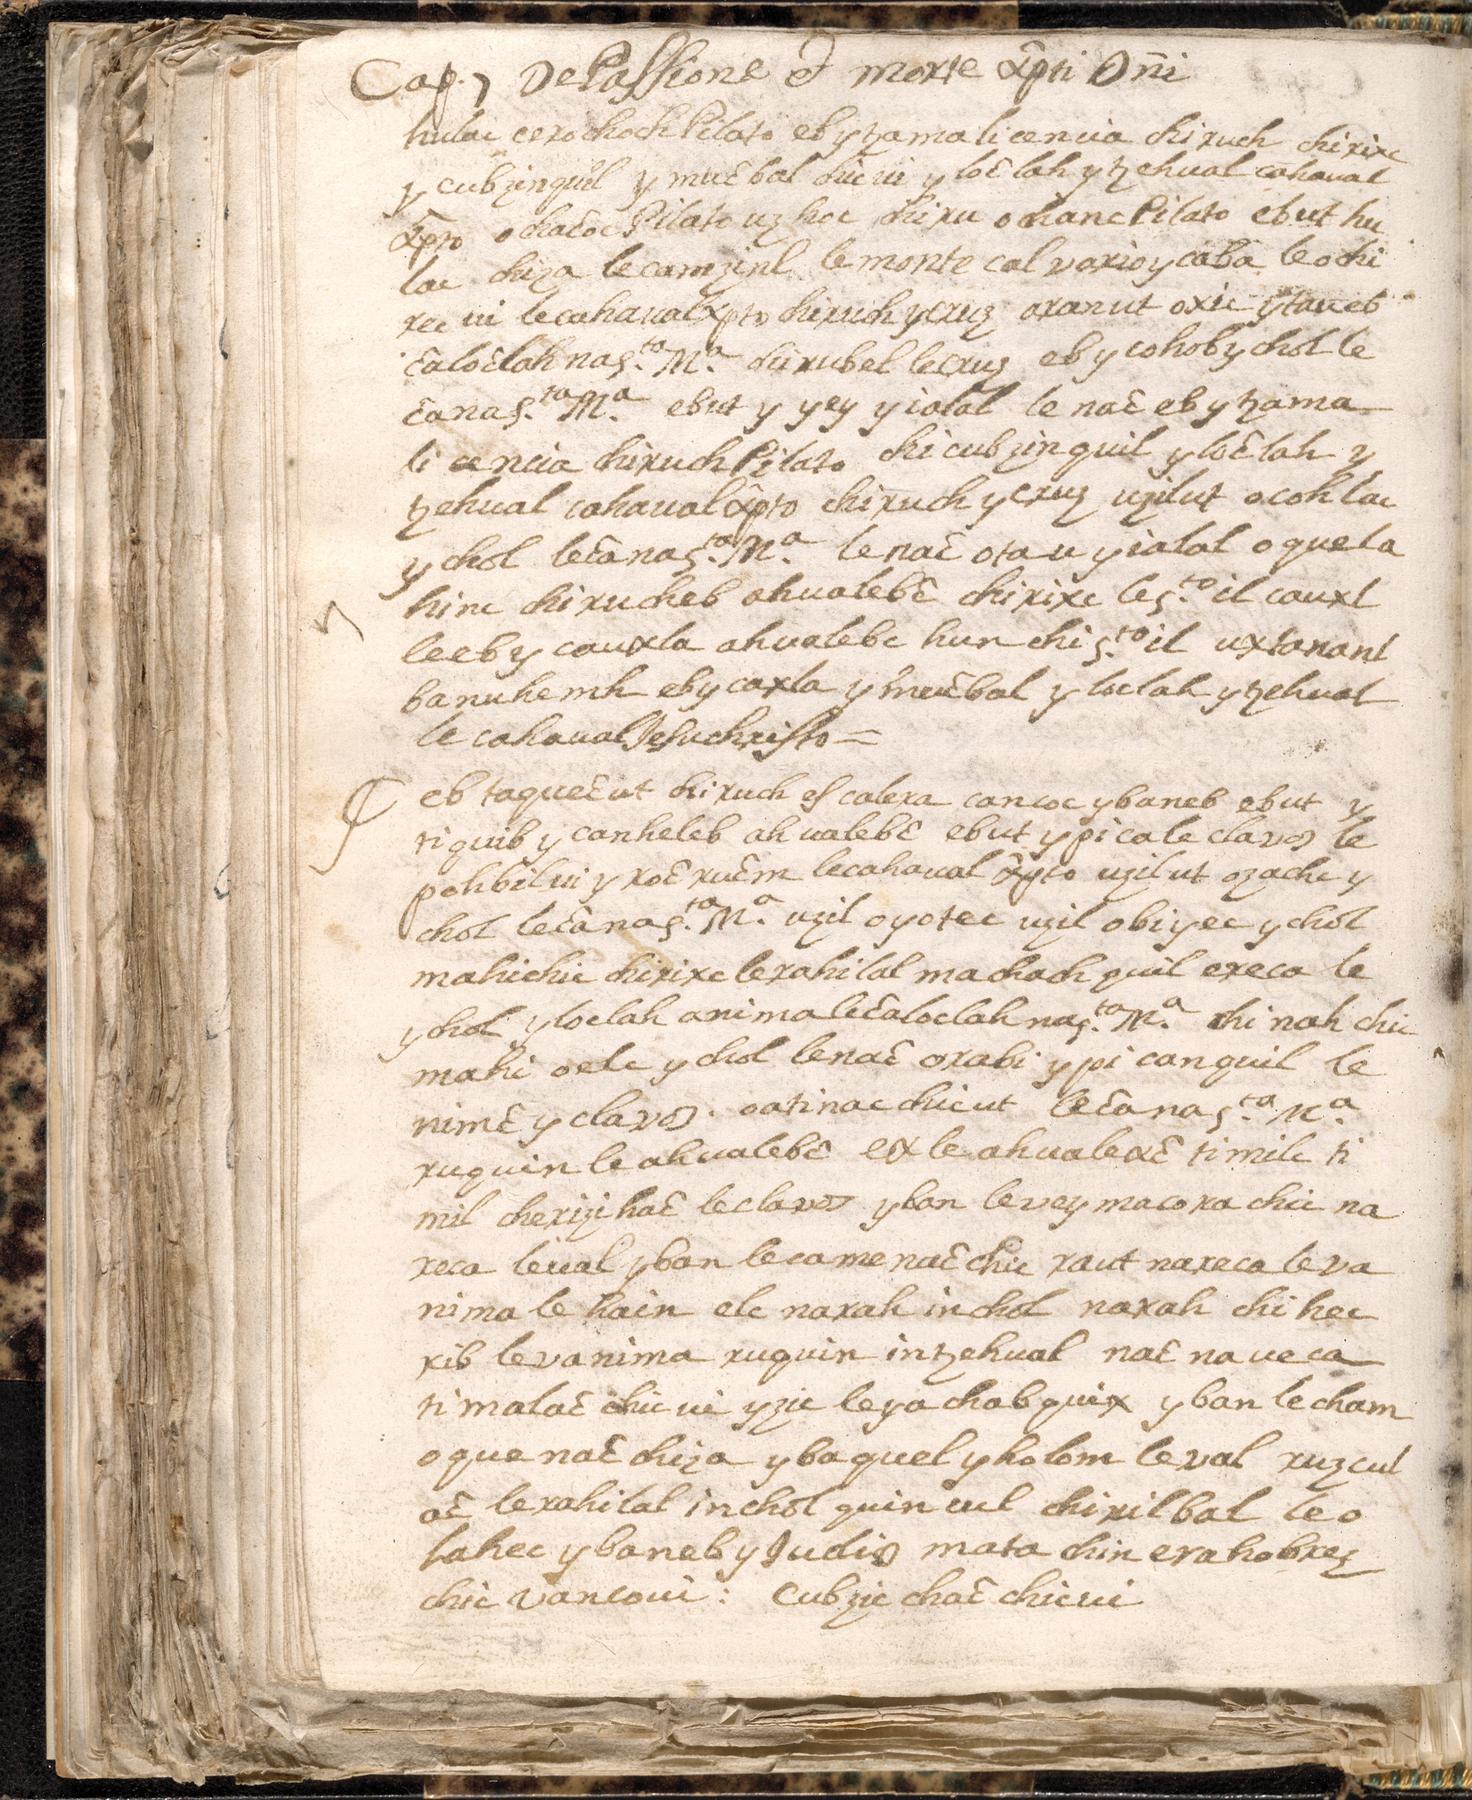 Cap. 7 De Passione et morte xp̄ti Dn̄i
hulac cerochoch Pilato eb ytzama licencia chi ruch chirixc
y cubzinquil y muc̄bal chic ui y loc̄lah y tzehual cahaual
xp̄to ochac̄oc Pilato uz hoc chiru o chanc Pilato ebut hu
lac chiza le camzinl le monte calvario y cabâ le ochi
rec ui le cahaual xpto chiruch y cruz oranut oxic y taueb
c̄aloc̄lah na s.ta M.a chirubel le cruz eb y cohob y chol le
c̄ana s.ta M.a ebut y yey y ialal le nac̄ eb y tzama
licencia chiruch Pilato chi cubzinquil y loc̄lah y
tzehual cahaual xp̄to chiruch y cruz uzilut ocohlac
y chol le c̄ana s.ta M.a le nac̄ otau y ialal oquela
hinc chirucheb ahualebc̄ chirixc le s.to il cauxl
le eb y cauxla ahualebc hun chi s.to il uxtananl
banuhemh eb y caxla y muc̄bal y loclah y tzehual
le cahaual Jesuchristo =
eb taquec̄ut chiruch escalera cancoc ybaneb ebut y
tiquib y canheleb ahualebc̄ ebut y picale clavos le
pohbil ui y roc̄ ruc̄m le cahaual xp̄to uzilut ozachc y
chol le c̄ana s.ta M.a uzil oyotec uzil obiyec y chol
mahichic chirixc le rahilal machach quil ereca le
y chol y loclah anima le c̄aloclah na s.ta M.a chi nah chic
mahi oelc y chol le nac̄ orabi y picanquil le
nimc̄ y clavos. oatinac chicut le c̄ana s.ta M.a
ruquin le ahualebc̄ ex le ahualexc̄ timilc ti
mil cherizihac̄ le clavos yban le vey macora chic na
reca leual yban le camenac̄ chic raut nareca le va
nima le hain elc narah inchol narah chi hec
xib le vanima ruquin intzehual nac̄ na ueca
timalac̄ chic ui yzic le ya chabquix yban le cham
oque nac̄ chiza y baquel y holom leval ruzcul
ac̄ le rahilal inchol quin cul chirilbal le o
lahec ybaneb y Judios mata chin erahobrez
chic vancoui : cubzic chac̄ chicui